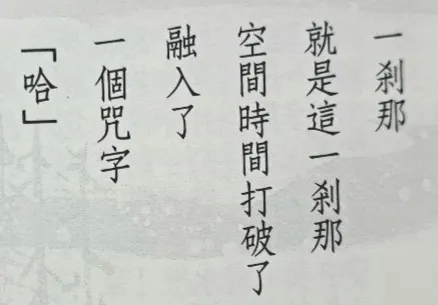 一剎那
就是這一剎那
空間時間打破了
融入了
一個咒字
「哈」